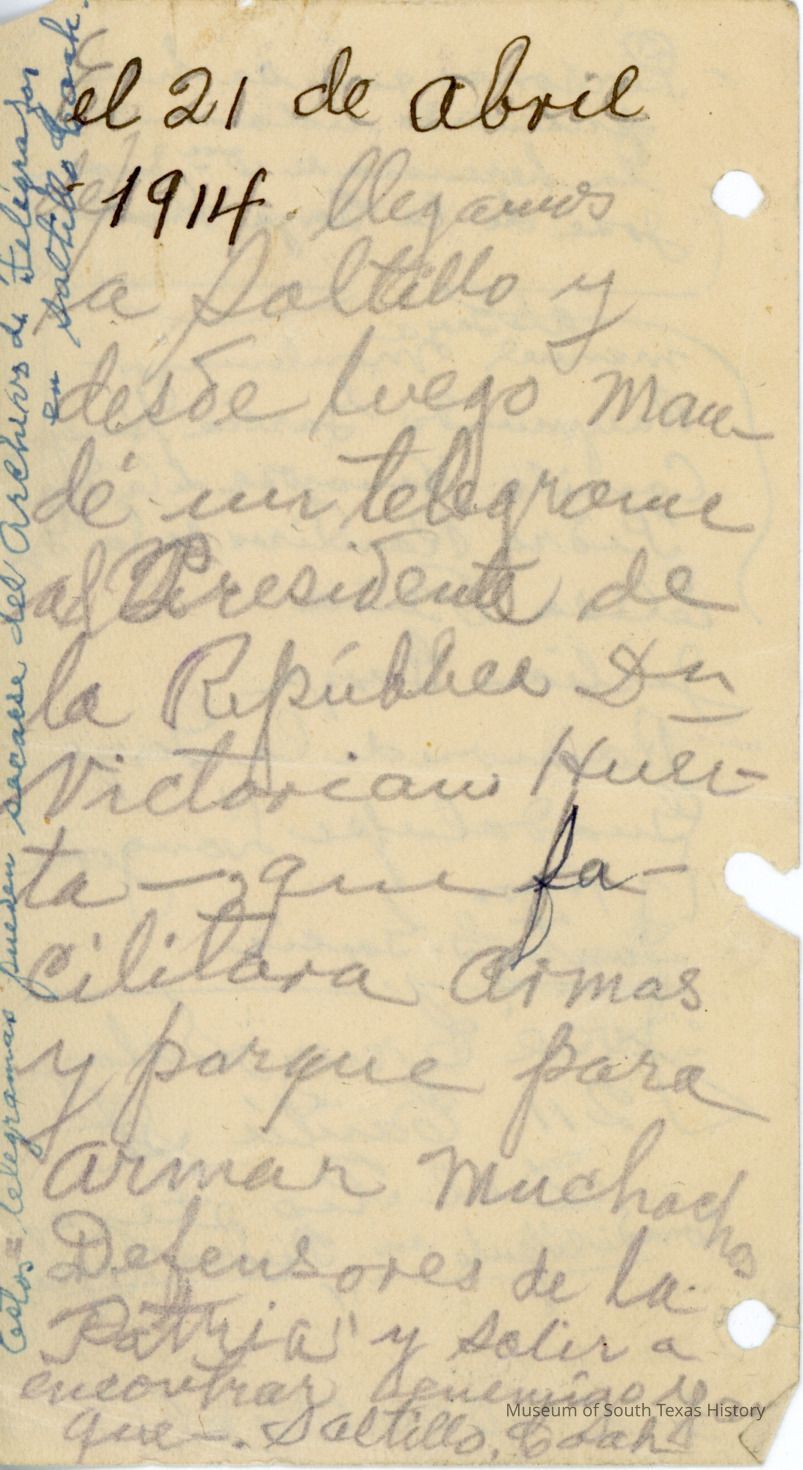 el 21 de abril
1914. llegamos
a Saltillo y
desde luego man-
dé un telegrama
al Presidente de
la República Dn
Victoriano Huer-
ta — que fa-
cilitara armas
y parque para
armar muchachos
Defensores de la
Patria" y salir a
encontrar enemigo
que —. Saltillo, Coah
Estos = telegramas pueden sacarse del Archivo de Telégrafos
en Saltillo Coah.
Museum of South Texas History